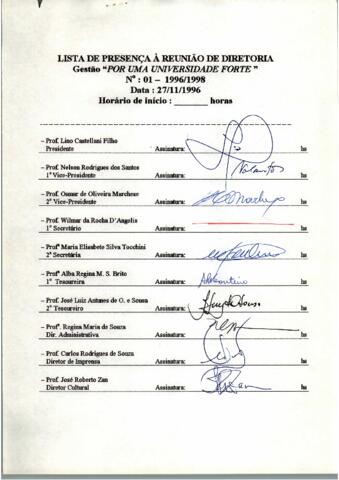 LISTA DE PRESENÇA À REUNIÃO DE DIRETORIA
Gestão "POR UMA UNIVERSIDADE FORTE"
Nº : 01 - 1996/1998
Data : 27/11/1996
Horário de início : ______ horas
- Prof. Lino Castellani Filho
Presidente Assinatura: hs
- Prof. Nelson Rodrigues dos Santos
1º Vice-Presidente Assinatura: hs
- Prof. Osmar de Oliveira Marchese
2º Vice-Presidente Assinatura: hs
- Prof. Wilmar da Rocha D'Angelis
1º Secretário Assinatura: hs
- Profª Maria Elisabete Silva Tocchini
2ª Secretária Assinatura: hs
- Profª Alba Regina M. S. Brito
1ª Tesoureira Assinatura: hs
- Prof. José Luiz Antunes de O. e Sousa
2º Tesoureiro Assinatura: hs
- Profª. Regina Maria de Souza
Dir. Administrativa Assinatura: hs
- Prof. Carlos Rodrigues de Souza
Diretor de Imprensa Assinatura: hs
- Prof. José Roberto Zan
Diretor Cultural Assinatura: hs